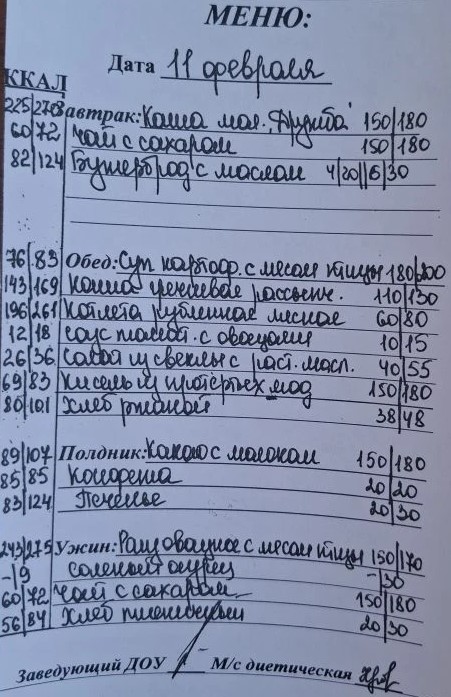 МЕНЮ:
Дата 11 февраля
ККАЛ
225|270 Завтрак: Каша мол. "Дружба" 150|180
60|72 Чай с сахаром 150|180
82|124 Бутерброд с маслом 4/20||6/30
76|83 Обед: Суп картоф. с мясом птицы 180|200
143|169 Каша гречневая рассыпч. 110|130
196|261 Котлета рубленная мясная 60|80
12|18 Соус томат. с овощами 10|15
26|36 Салат из свеклы с раст. масл. 40|55
69|83 Кисель из протертых ягод 150|180
80|101 Хлеб ржаной 38|48
89|107 Полдник: Какао с молоком 150|180
85|85 Конфета 20|20
83|124 Печенье 20|30
243|275 Ужин: Рагу овощное с мясом птицы 150|170
-|9 соленый огурец -|30
60|72 Чай с сахаром 150|180
56|84 Хлеб пшеничный 20|30
Заведующий ДОУ М/с диетическая